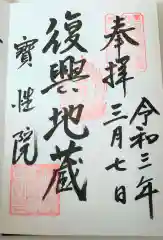 奉拝
令和三年
三月七日
復興地蔵
寶性院